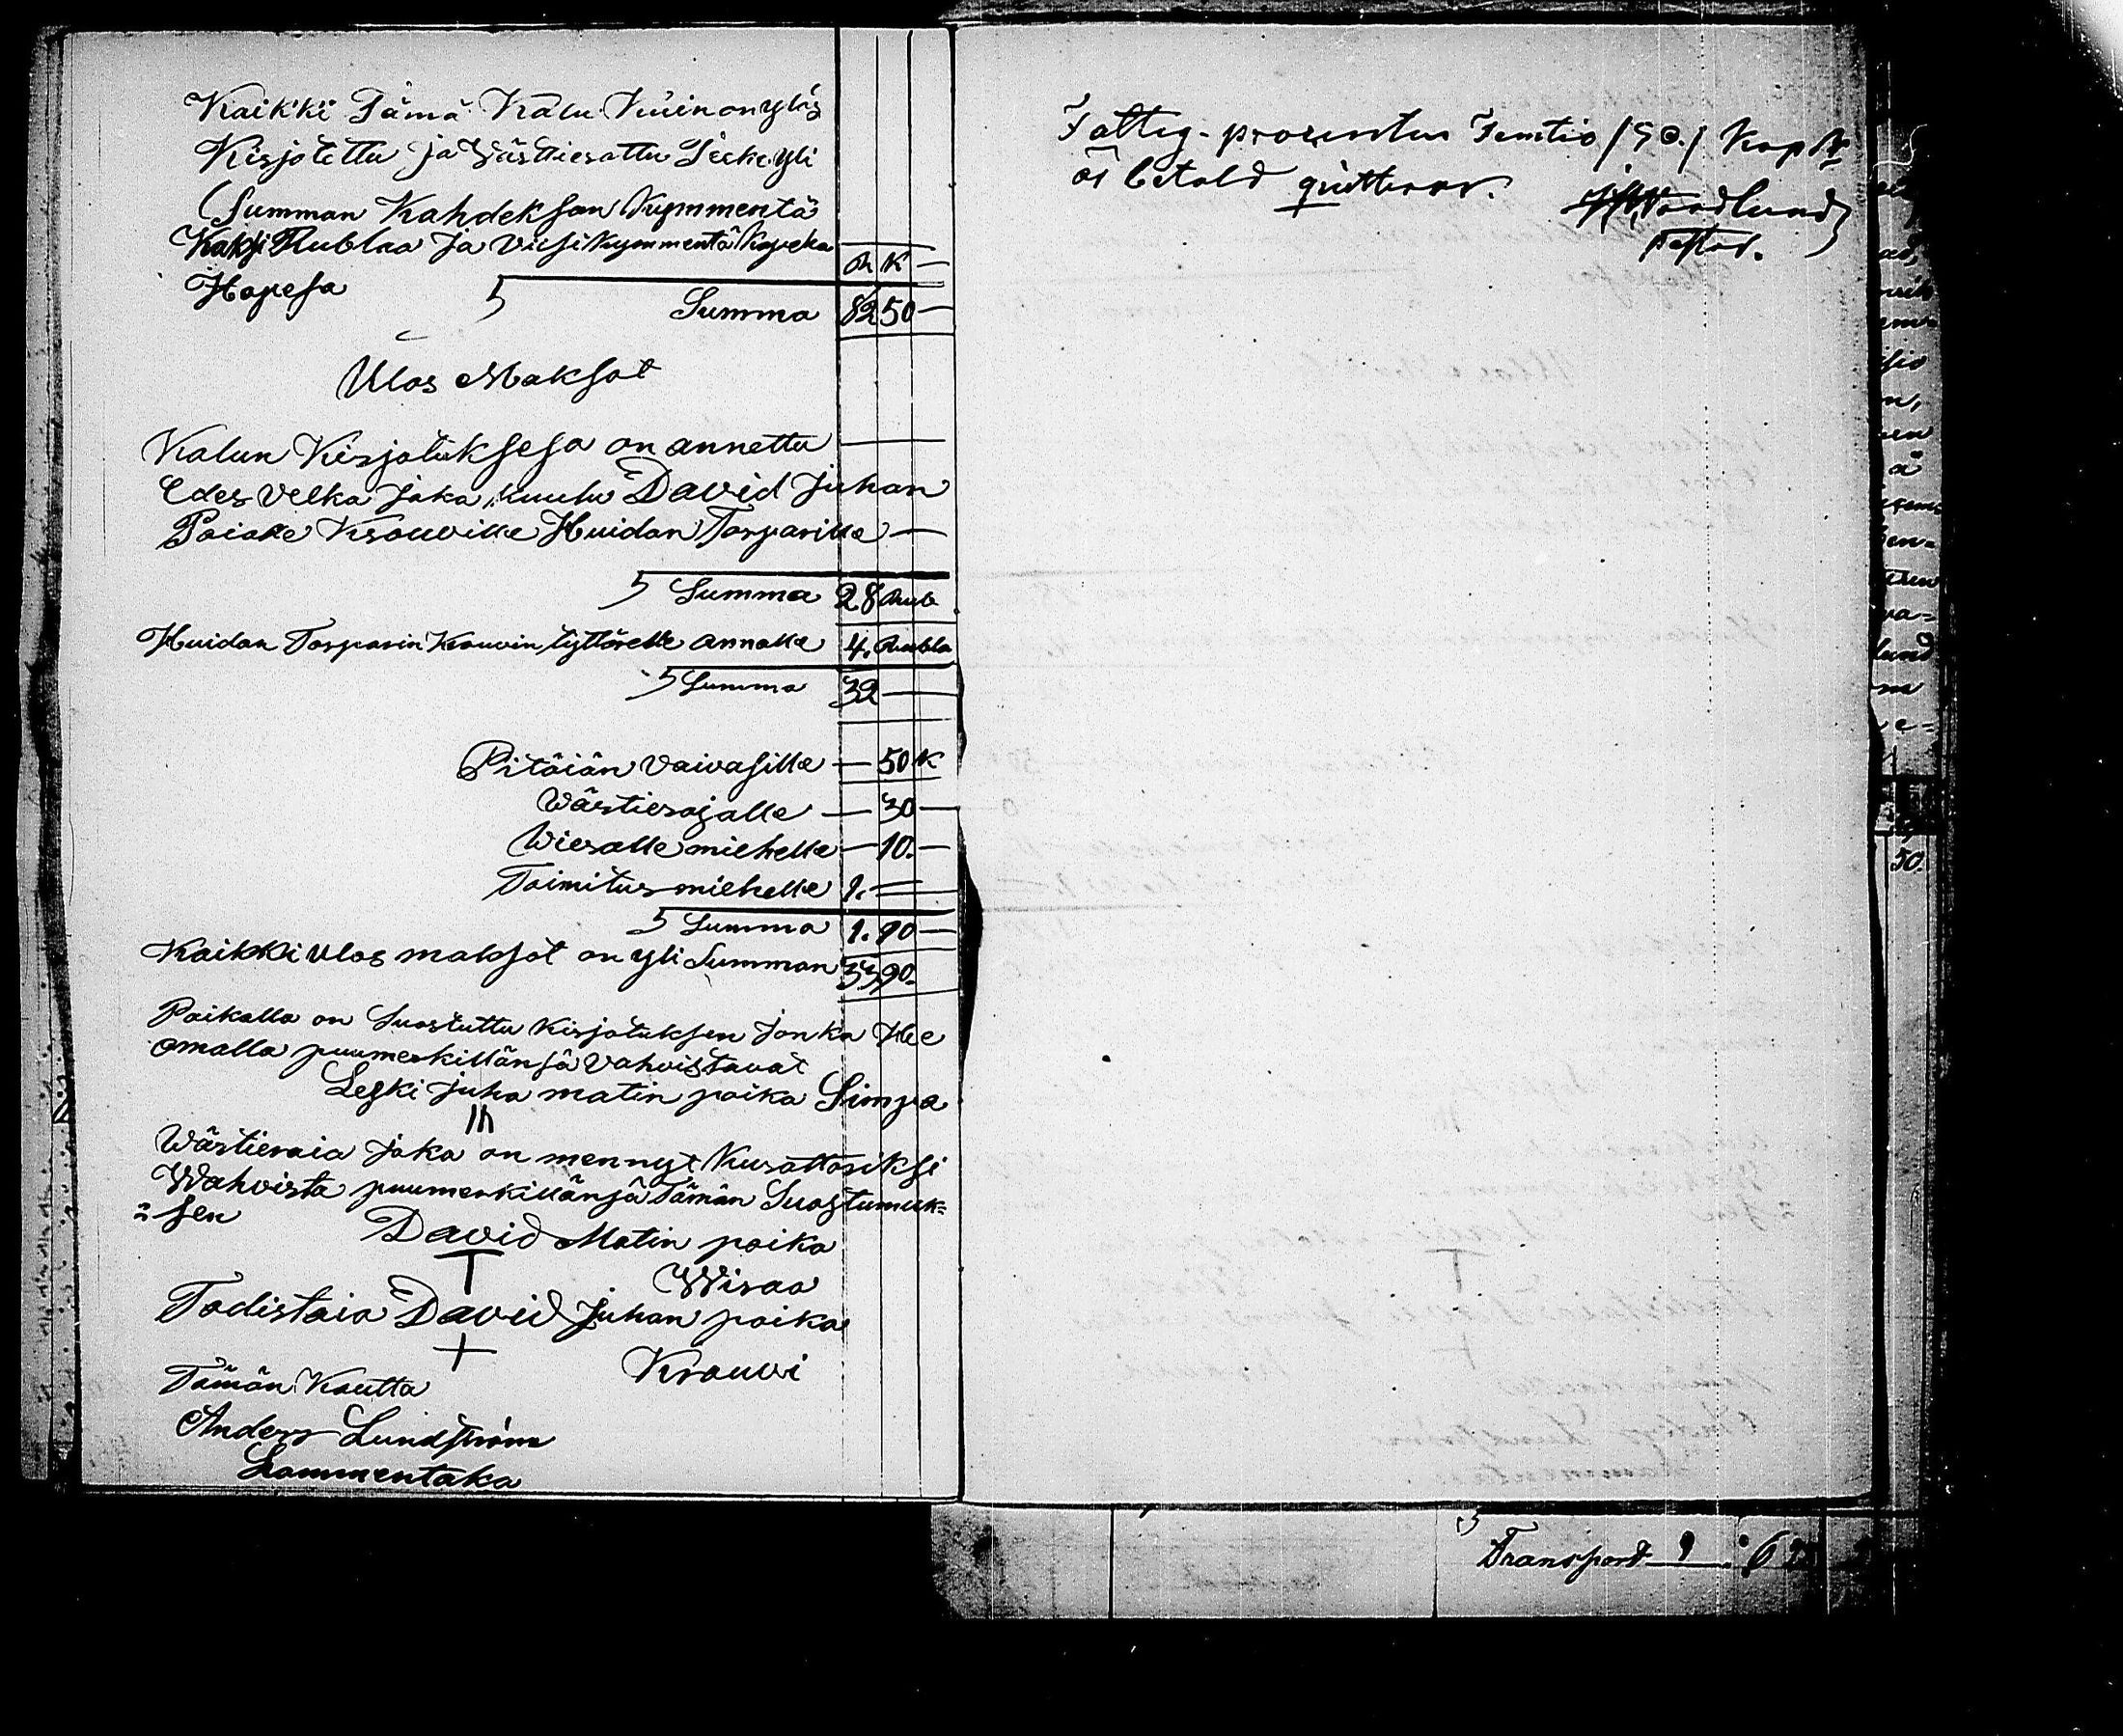 Kaikki Tämä Kalu Kuin on ylös
Kirjotettu ja Wärttierattu Teeke yli
Summan Kahdeksan Kymmentä
Kaksi Rublaa ja Viisi Kymmentä Kopeka
R K —
Hopesa
Summa 82 50 —
Ulos Maksot
Kalun Kirjotuksesa on annettu
Edes Velka joka kuulu David Juhan
Pojalle Krouville Huidan Torparille —
Summa 28 Rub
Huidan Torparin Krouvin tyttärelle annalle 4. Rubla
Summa 32 —
Pitäiän Vaivasille — 50 K
Wärtierajalle — 30 —
Wieralle miehelle — 10. —
Toimitus miehelle 1. —
Summa 1. 90 —
Kaikki Ulos maksot on yli Summan 33,90.
Paikalla on Suostuttu Kirjotuksen jonka He
omalla puumerkillänsä Vahvistavat
Leski Juha matin poika Simpa
Wärtieraia joka on mennyt Kurattoriksi
Wahvista puumerkillänsä Tämän Suostumuk=
=sen
David Matin poika
T
Wiraa
Todistaia David Juhan poika
+
Krouvi
Tämän Kautta
Anders Lundström
Lammentaka
Fattig-procenten Femtio /50./ Kop Sr
är betald qvitterar.
Nordlund
Pastor.
Transport 1
50.